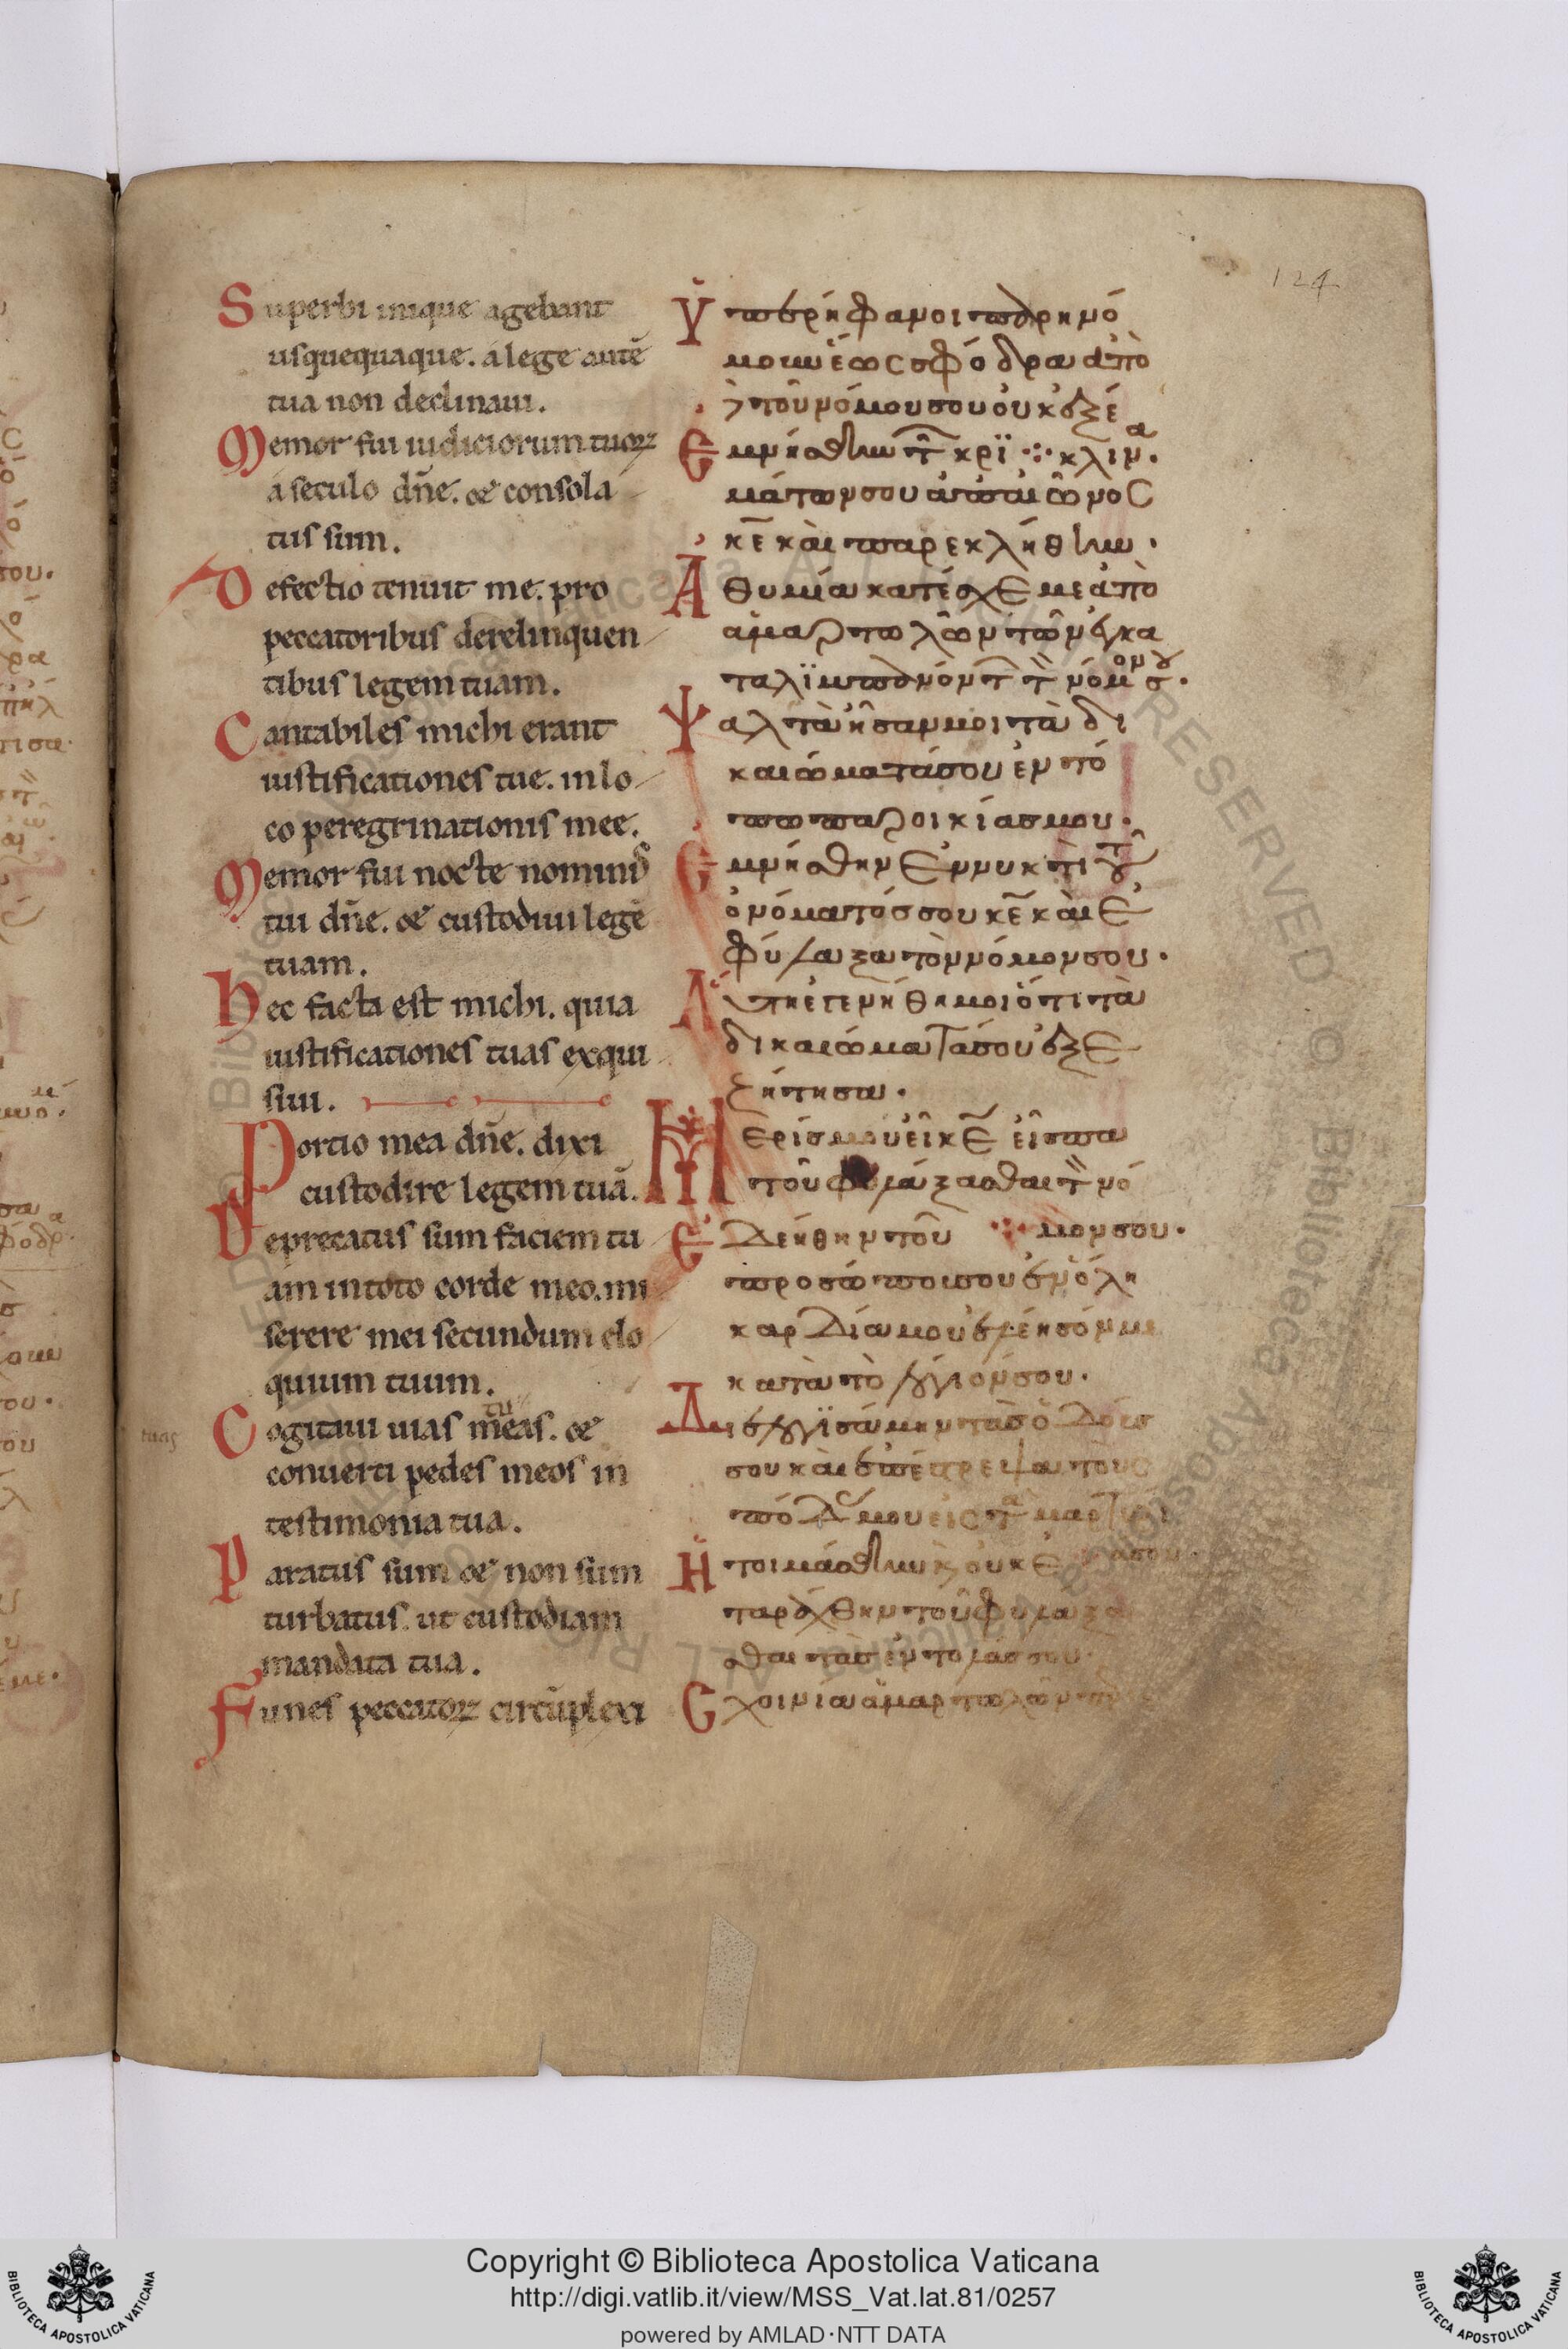 124
Superbi inique agebant
usquequaque. a lege autē
tua non declinaui.
Memor fui iudiciorum tuoꝝ
a seculo dn̄e. et consola
tus sum.
Defectio tenuit me. pro
peccatoribus derelinquen
tibus legem tuam.
Cantabiles michi erant
iustificationes tue. in lo
co peregrinationis mee.
Memor fui nocte nominis
tui dn̄e. et custodiui legē
tuam.
Hec facta est michi. quia
iustificationes tuas exqui
siui.
Portio mea dn̄e. dixi
custodire legem tuā.
Deprecatus sum faciem tu
am in toto corde meo. mi
serere mei secundum elo
quium tuum.
tu
Cogitaui uias meas. et
tuas
conuerti pedes meos in
testimonia tua.
Paratus sum et non sum
turbatus. ut custodiam
mandata tua.
Funes peccatoꝝ circūplexi
Ὑπερήφανοι παρηνό
μουν ἕως σφόδρα ἀπὸ
τοῦ νόμου σου οὐκ ἐξέ
κλινα.
Ἐμνήσθην τῶν κρι
μάτων σου ἀπ αἰῶνος
κ̄ε καὶ παρεκλήθην.
Ἀθυμία κατέσχε με ἀπὸ
ἁμαρτωλῶν τῶν ἐγκα
ταλιμπανόντων τὸν νόμον σου.
Ψαλτὰ ἦσαν μοι τὰ δι
καιώματά σου ἐν τό
πω παροικίασ μου.
Ἐμνήσθην ἐν νυκτὶ τοῦ
ὀνόματός σου κ̄ε καὶ ἐ
φύλαξα τὸν νόμον σου.
Αὕτη ἐγενήθη μοι ὅτι τὰ
δικαιώματά σου ἐξε
ζήτησα.
Μερίσ μου εἶ κ̄ε εἶπα
τοῦ φυλάξασθαι τὸν νό
μον σου.
Ἐδεήθην τοῦ
προσώπου σου ἐν ὅλη
καρδία μου ἐλέησόν με
κατὰ τὸ λόγιόν σου.
σου καὶ ἐπέστρεψα τοὺς
πόδας μου εἰς τὰ μαρτύρι
ά σου.
Ἡτοιμάσθην καὶ οὐκ ἐ
ταράχθην τοῦ φυλάξα
σθαι τὰσ ἐντολάσ σου.
Σχοινία ἁμαρτωλῶν
Copyright © Biblioteca Apostolica Vaticana
http://digi.vatlib.it/view/MSS_Vat.lat.81/0257
powered by AMLAD·NTT DATA
BIBLIOTECA APOSTOLICA VATICANA
BIBLIOTECA APOSTOLICA VATICANA